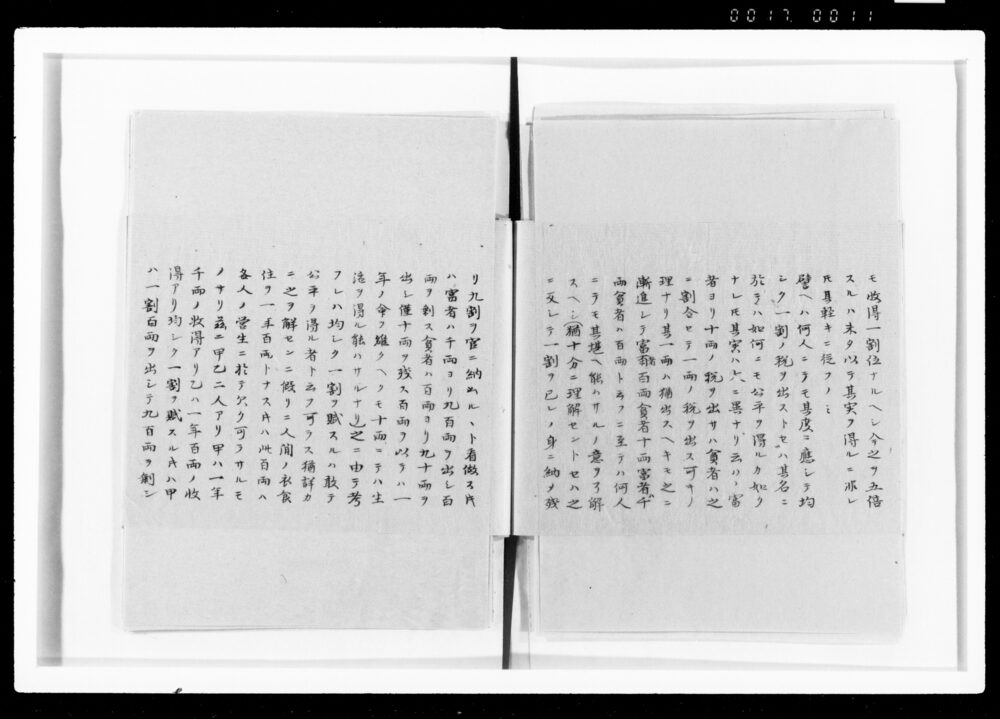 0017. 0011
モ收得一割位ナルヘシ今之ヲ五倍
スルハ未タ以テ其実ヲ得ルニ非レ
𪜈其軽キニ従フノミ
譬ヘハ何人ニテモ其度ニ應シテ均
シク一割ノ税ヲ出ストセハ其名ニ
於テハ如何ニモ公平ヲ得ルカ如ク
ナレ𪜈其実ハ大ニ異ナリ云ハヽ富
者ヨリ十両ノ税ヲ出サハ貧者ハ之
ニ割合セテ一両ノ税ヲ出ス可キノ
理ナリ其一両ハ猶出スヘキモ之ニ
漸進シテ富者百両貧者十両富者千
両貧者ハ百両ト云フニ至テハ何人
ニテモ其堪ヘ能ハサルノ意ヲ了解
スヘシ猶十分ニ理解セントセハ之
ニ反シテ一割ヲ己レノ身ニ納メ残
リ九割ヲ官ニ納ムルヽト看做ス𪜈
ハ富者ハ千両ヨリ九百両ヲ出シ百
両ヲ剰ス貧者ハ百両ヨリ九十両ヲ
出シ僅十両ヲ残ス百両ヲ以テハ一
年ノ命ヲ繼クヘクモ十両ニテハ生
活ヲ得ル能ハサルナリ之ニ由テ考
フレハ均シク一割ヲ賦スルハ敢テ
公平ヲ得ル者ト云フ可ラス猶詳カ
ニ之ヲ解センニ假リニ人間ノ衣食
住ヲ一年百両トナス𪜈ハ此百両ハ
各人ノ営生ニ於テ欠ク可ラサルモ
ノナリ茲ニ甲乙二人アリ甲ハ一年
千両ノ收得アリ乙ハ一年百両ノ收
得アリ均シク一割ヲ賦スル𪜈ハ甲
ハ一割百両ヲ出シテ九百両ヲ剰シ